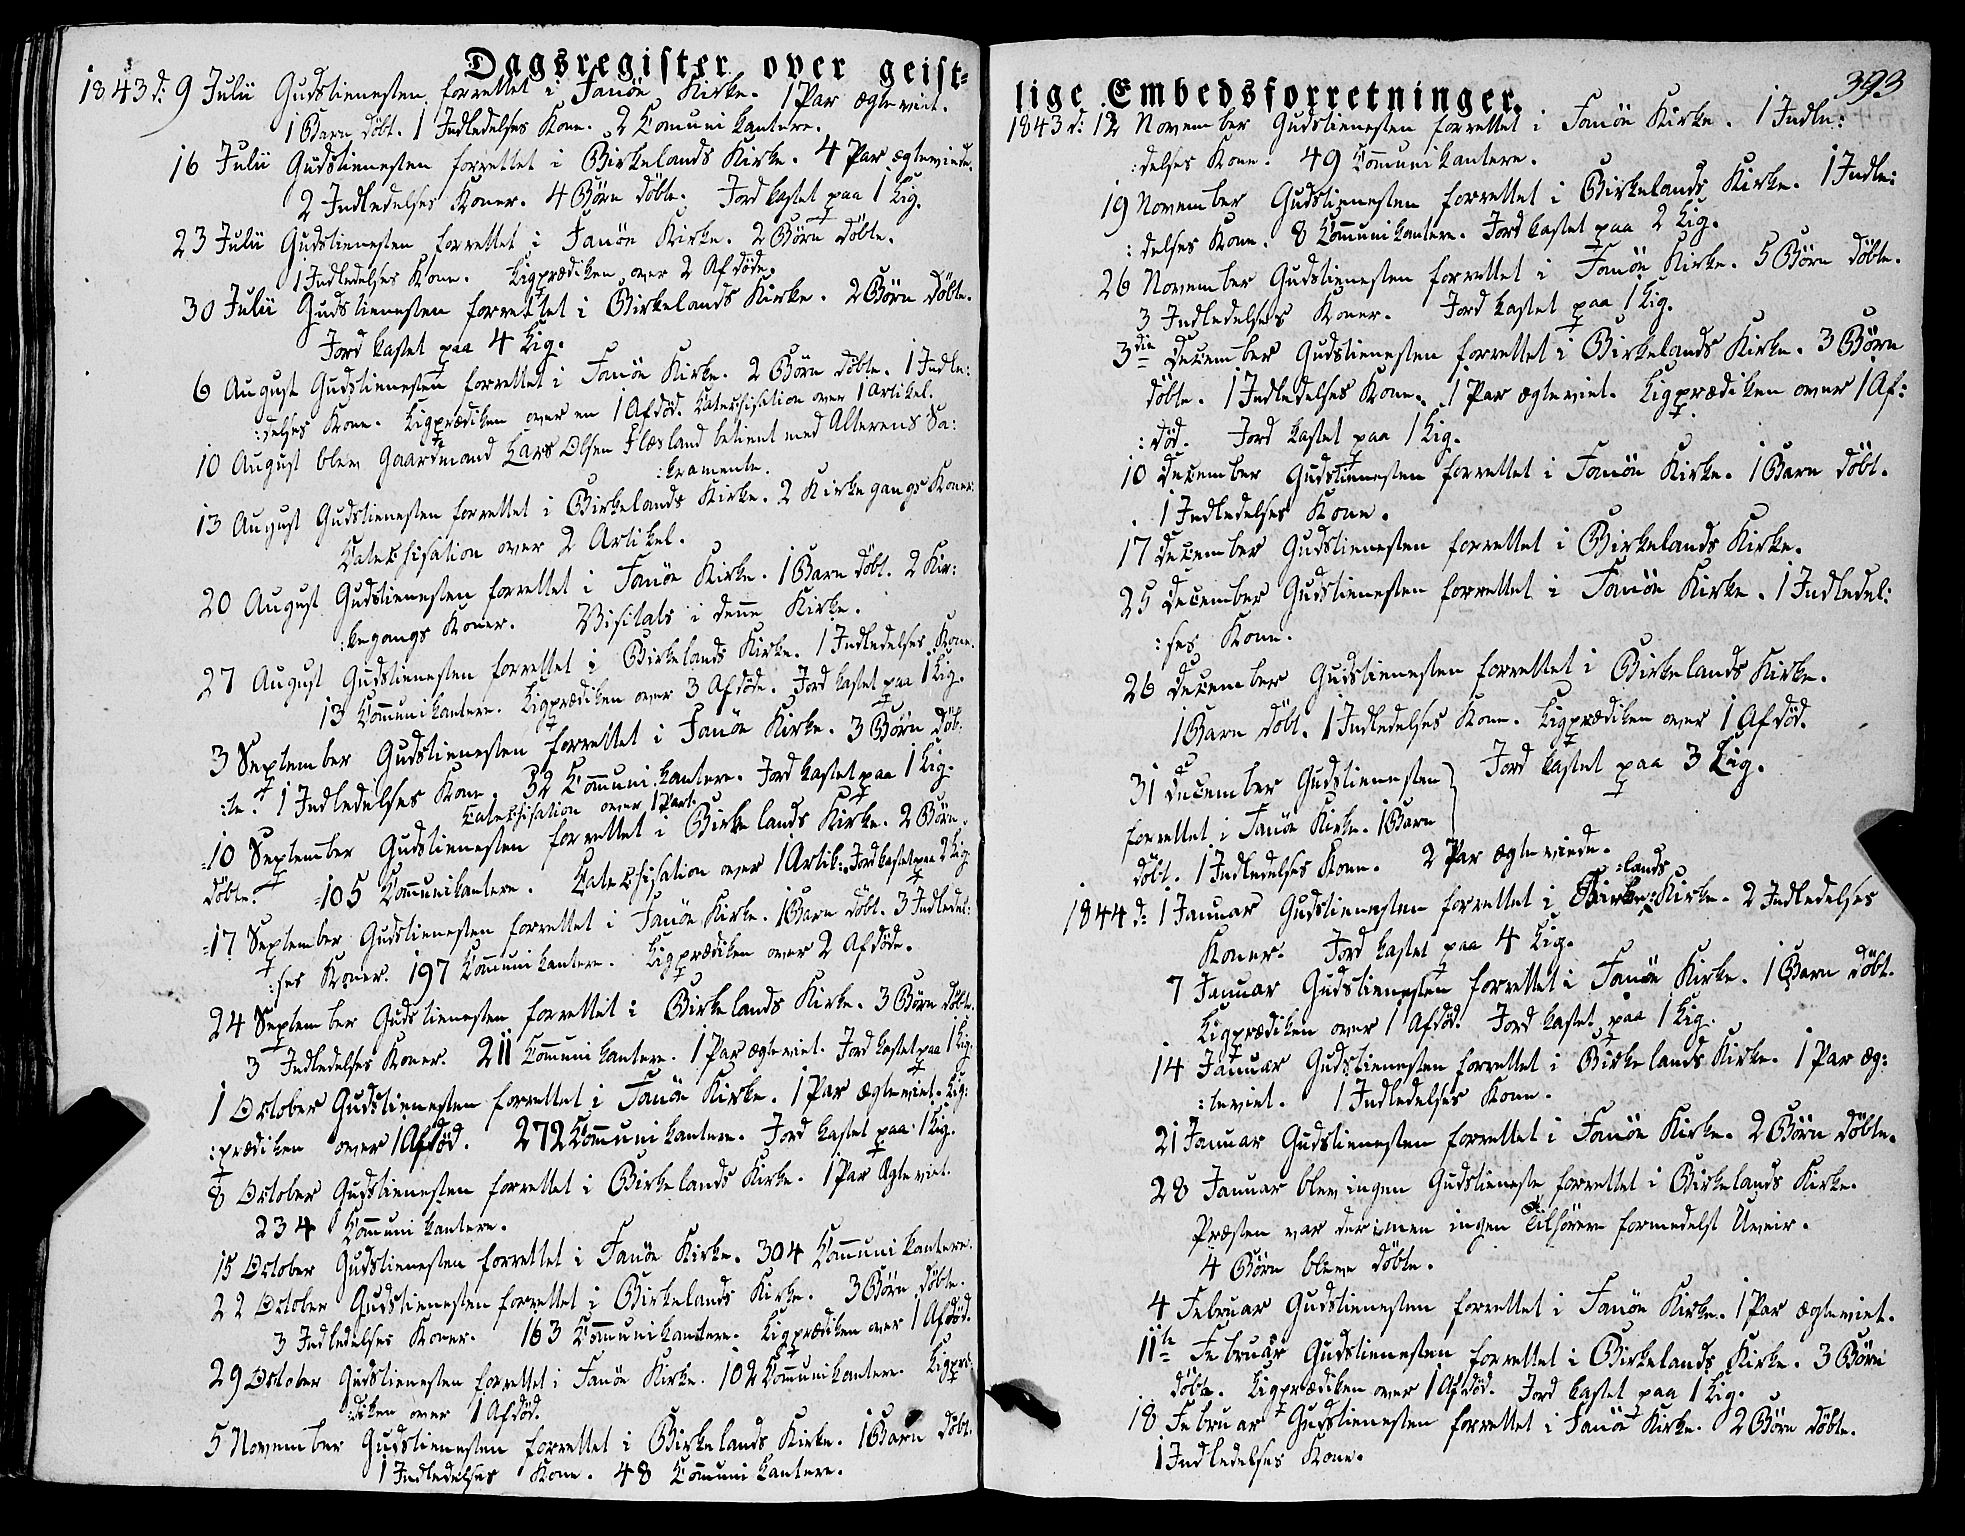 Dagsregister over geist=
1843 d: 9 Julii Gudstienesten forrettet i Fanöe Kirke. 1 Par ægteviet.
1 Barn döbt. 1 Indledelses Kone. 2 Com̅unikantere.
16 Julii Gudstienesten forrettet i Birkelands Kirke. 4 Par ægteviede.
2 Indledelses Koner. 4 Börn döbte. Jord kastet paa 1 Lig.
23 Julii Gudstienesten forrettet i Fanöe Kirke. 2 Börn döbte.
1 Indledelses Kone. Ligprædiken over 2 Afdöde.
30 Julii Gudstienesten forrettet i Birkelands Kirke. 2 Börn döbte.
Jord kastet paa 4 Lig.
6 August Gudstienesten forrettet i Fanöe Kirke. 2 Börn döbte. 1 Indle:
:delses Kone. Ligprædiken over en 1 Afdöd. Catechisation over 1 Artikel.
10 August blev Gaardmand Lars Olsen Flæsland betient med Alterens Sa:
:kramente.
13 August Gudstienesten forrettet i Birkelands Kirke. 2 Kirkegangs Koner.
Catechisation over 2 Artikel.
20 August Gudstienesten forrettet i Fanöe Kirke. 1 Barn döbt. 2 Kir:
:kegangs Koner. Visitats i den̅e Kirke.
27 August Gudstienesten forrettet i Birkelands Kirke. 1 Indledelses Kone.
13 Com̅unikantere. Ligprædiken over 3 Afdöde. Jord kastet paa 1 Lig.
3 September Gudstienesten forrettet i Fanöe Kirke. 3 Börn döb:
:te. 1 Indledelses Kone. 32 Com̅unikantere. Jord kastet paa 1 Lig.
Catechisation over 1 Part.
10 September Gudstienesten forrettet i Birkelands Kirke. 2 Börn
döbte. 105 Com̅unikantere. Catechisation over 1 Artik: Jord kastet paa 2 Lig.
17 September Gudstienesten forrettet i Fanöe Kirke. 1 Barn döbt. 3 Indledel:
:ses Koner. 197 Com̅unikantere. Ligprædiken over 2 Afdöde.
24 September Gudstienesten forrettet i Birkelands Kirke. 3 Börn döbte.
3 Indledelses Koner. 211 Com̅unikantere. 1 Par ægteviet. Jord kastet paa 1 Lig.
1 October Gudstienesten forrettet i Fanöe Kirke. 1 Par ægteviet. Lig:
:prædiken over 1 Afdöd. 272 Com̅unikantere. Jord kastet paa 1 Lig.
8 October Gudstienesten forrettet i Birkelands Kirke. 1 Par Ægteviet.
234 Com̅unikantere.
15 October Gudstienesten forrettet i Fanöe Kirke. 304 Com̅unikantere.
22 October Gudstienesten forrettet i Birkelands Kirke. 3 Börn döbte.
3 Indledelses Koner. 163 Com̅unikantere. Ligprædiken over 1 Afdöd.
29 October Gudstienesten forrettet i Fanöe Kirke. 102 Com̅unikantere. Ligpræ:
:diken over 1 Afdöd.
5 November Gudstienesten forrettet i Birkelands Kirke. 1 Barn döbt.
1 Indledelses Kone. 48 Com̅unikantere.
393
lige Embedsforretninger.
1843 d: 12 November Gudstienesten forrettet i Fanöe Kirke. 1 Indle:
:delses Kone. 49 Com̅unikantere.
19 November Gudstienesten forrettet i Birkelands Kirke. 1 Indle:
:delses Kone. 8 Com̅unikantere. Jord kastet paa 2 Lig.
26 November Gudstienesten forrettet i Fanöe Kirke. 5 Börn döbte.
3 Indledelses Koner. Jord kastet paa 1 Lig.
3die December Gudstienesten forrettet i Birkelands Kirke. 3 Börn
döbte. 1 Indledelses Kone. 1 Par ægteviet. Ligprædiken over 1 Af:
:död. Jord kastet paa 1 Lig.
10 December Gudstienesten forrettet i Fanöe Kirke. 1 Barn döbt.
1 Indledelses Kone.
17 December Gudstienesten forrettet i Birkelands Kirke.
25 December Gudstienesten forrettet i Fanöe Kirke. 1 Indledel:
:ses Kone.
26 December Gudstienesten forrettet i Birkelands Kirke.
1 Barn döbt. 1 Indledelses Kone. Ligprædiken over 1 Afdöd.
Jord kastet paa 3 Lig.
31 December Gudstienesten
forrettet i Fanöe Kirke. 1 Barn
döbt. 1 Indledelses Kone. 2 Par ægteviede.
:lands
1844 d: 1 Januar Gudstienesten forrettet i Birke: Kirke. 2 Indledelses
Koner. Jord kastet paa 4 Lig.
7 Januar Gudstienesten forrettet i Fanöe Kirke. 1 Barn döbt.
Ligprædiken over 1 Afdöd. Jord kastet paa 1 Lig.
14 Januar Gudstienesten forrettet i Birkelands Kirke. 1 Par æg:
:teviet. 1 Indledelses Kone.
21 Januar Gudstienesten forrettet i Fanöe Kirke. 2 Börn döbte.
28 Januar blev ingen Gudstieneste forrettet i Birkelands Kirke.
Præsten var der: men ingen Tilhörere formedelst Uveir.
4 Börn bleve döbte.
4 Februar Gudstienesten forrettet i Fanöe Kirke. 1 Par ægteviet.
11te Februar Gudstienesten forrettet i Birkelands Kirke. 3 Börn
döbte. Ligprædiken over 1 Afdöd. Jord kastet paa 1 Lig.
18 Februar Gudstienesten forrettet i Fanöe Kirke. 2 Börn döbte.
1 Indledelses Kone.